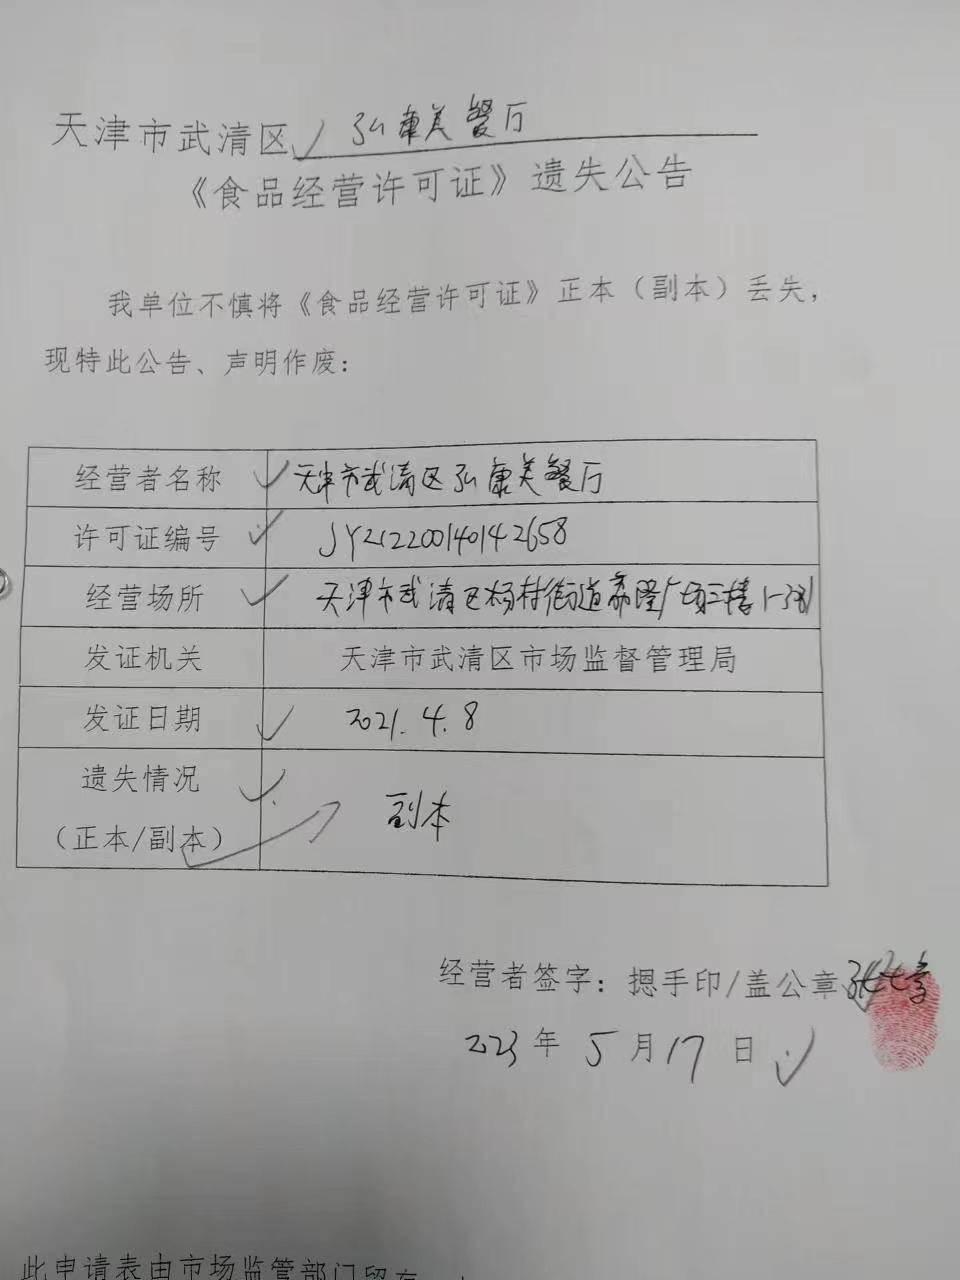 天津市武清区 弘康美餐厅
《食品经营许可证》遗失公告
我单位不慎将《食品经营许可证》正本（副本）丢失，
现特此公告、声明作废：
经营者名称 天津市武清区弘康美餐厅
许可证编号 JY2122200140142658
经营场所 天津市武清区杨村街道 隆广场三楼1-38
发证机关 天津市武清区市场监督管理局
发证日期 2021.4.8
遗失情况
（正本/副本） 副本
经营者签字：摁手印/盖公章
2023年 5月17日
此申请表由市场监管部门留存